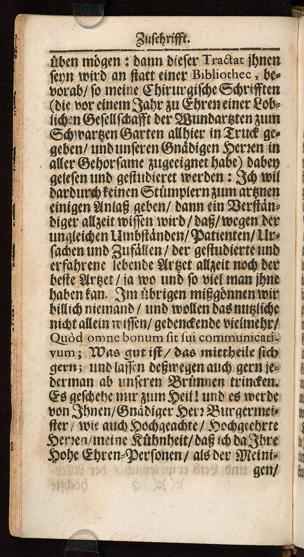 Zuschrifft.
üben mögen: dann dieser Tractat jhnen
seyn wird an statt einer Bibliothec, be-
vorab/ so meine Chirurgische Schrifften
(die vor einem Jahr zu Ehren einer Lob-
lichen Gesellschafft der Wundartzten zum
Schwartzen Garten allhier in Truck ge-
geben/ und unseren Gnädigen Herren in
aller Gehorsame zugeeignet habe) dabey
gelesen und gestudieret werden: Jch wil
dardurch keinen Stümplern zum artznen
einigen Anlaß geben/ dann ein Verstän-
diger allzeit wissen wird/ daß/ wegen der
ungleichen Umbständen/ Patienten/ Ur-
sachen und Zufällen/ der gestudierte und
erfahrene lebende Artzet allzeit noch der
beste Artzet/ ja wo und so viel man jhne
haben kan. Jm übrigen mißgönnen wir
billich niemand/ und wollen das nutzliche
nicht allein wissen/ gedenckende vielmehr/
Quòd omne bonum sit sui communicati-
vum; Was gut ist/ das mittheile sich
gern; und lassen deßwegen auch gern je-
derman ab unseren Brünnen trincken.
Es geschehe nur zum Heil! und es werde
von Jhnen/ Gnädiger Herr Burgermei-
ster/ wie auch Hochgeachte/ Hochgeehrte
Herren/ meine Kühnheit/ daß ich da Jhre
Hohe Ehren-Personen/ als der Meini-
gen/